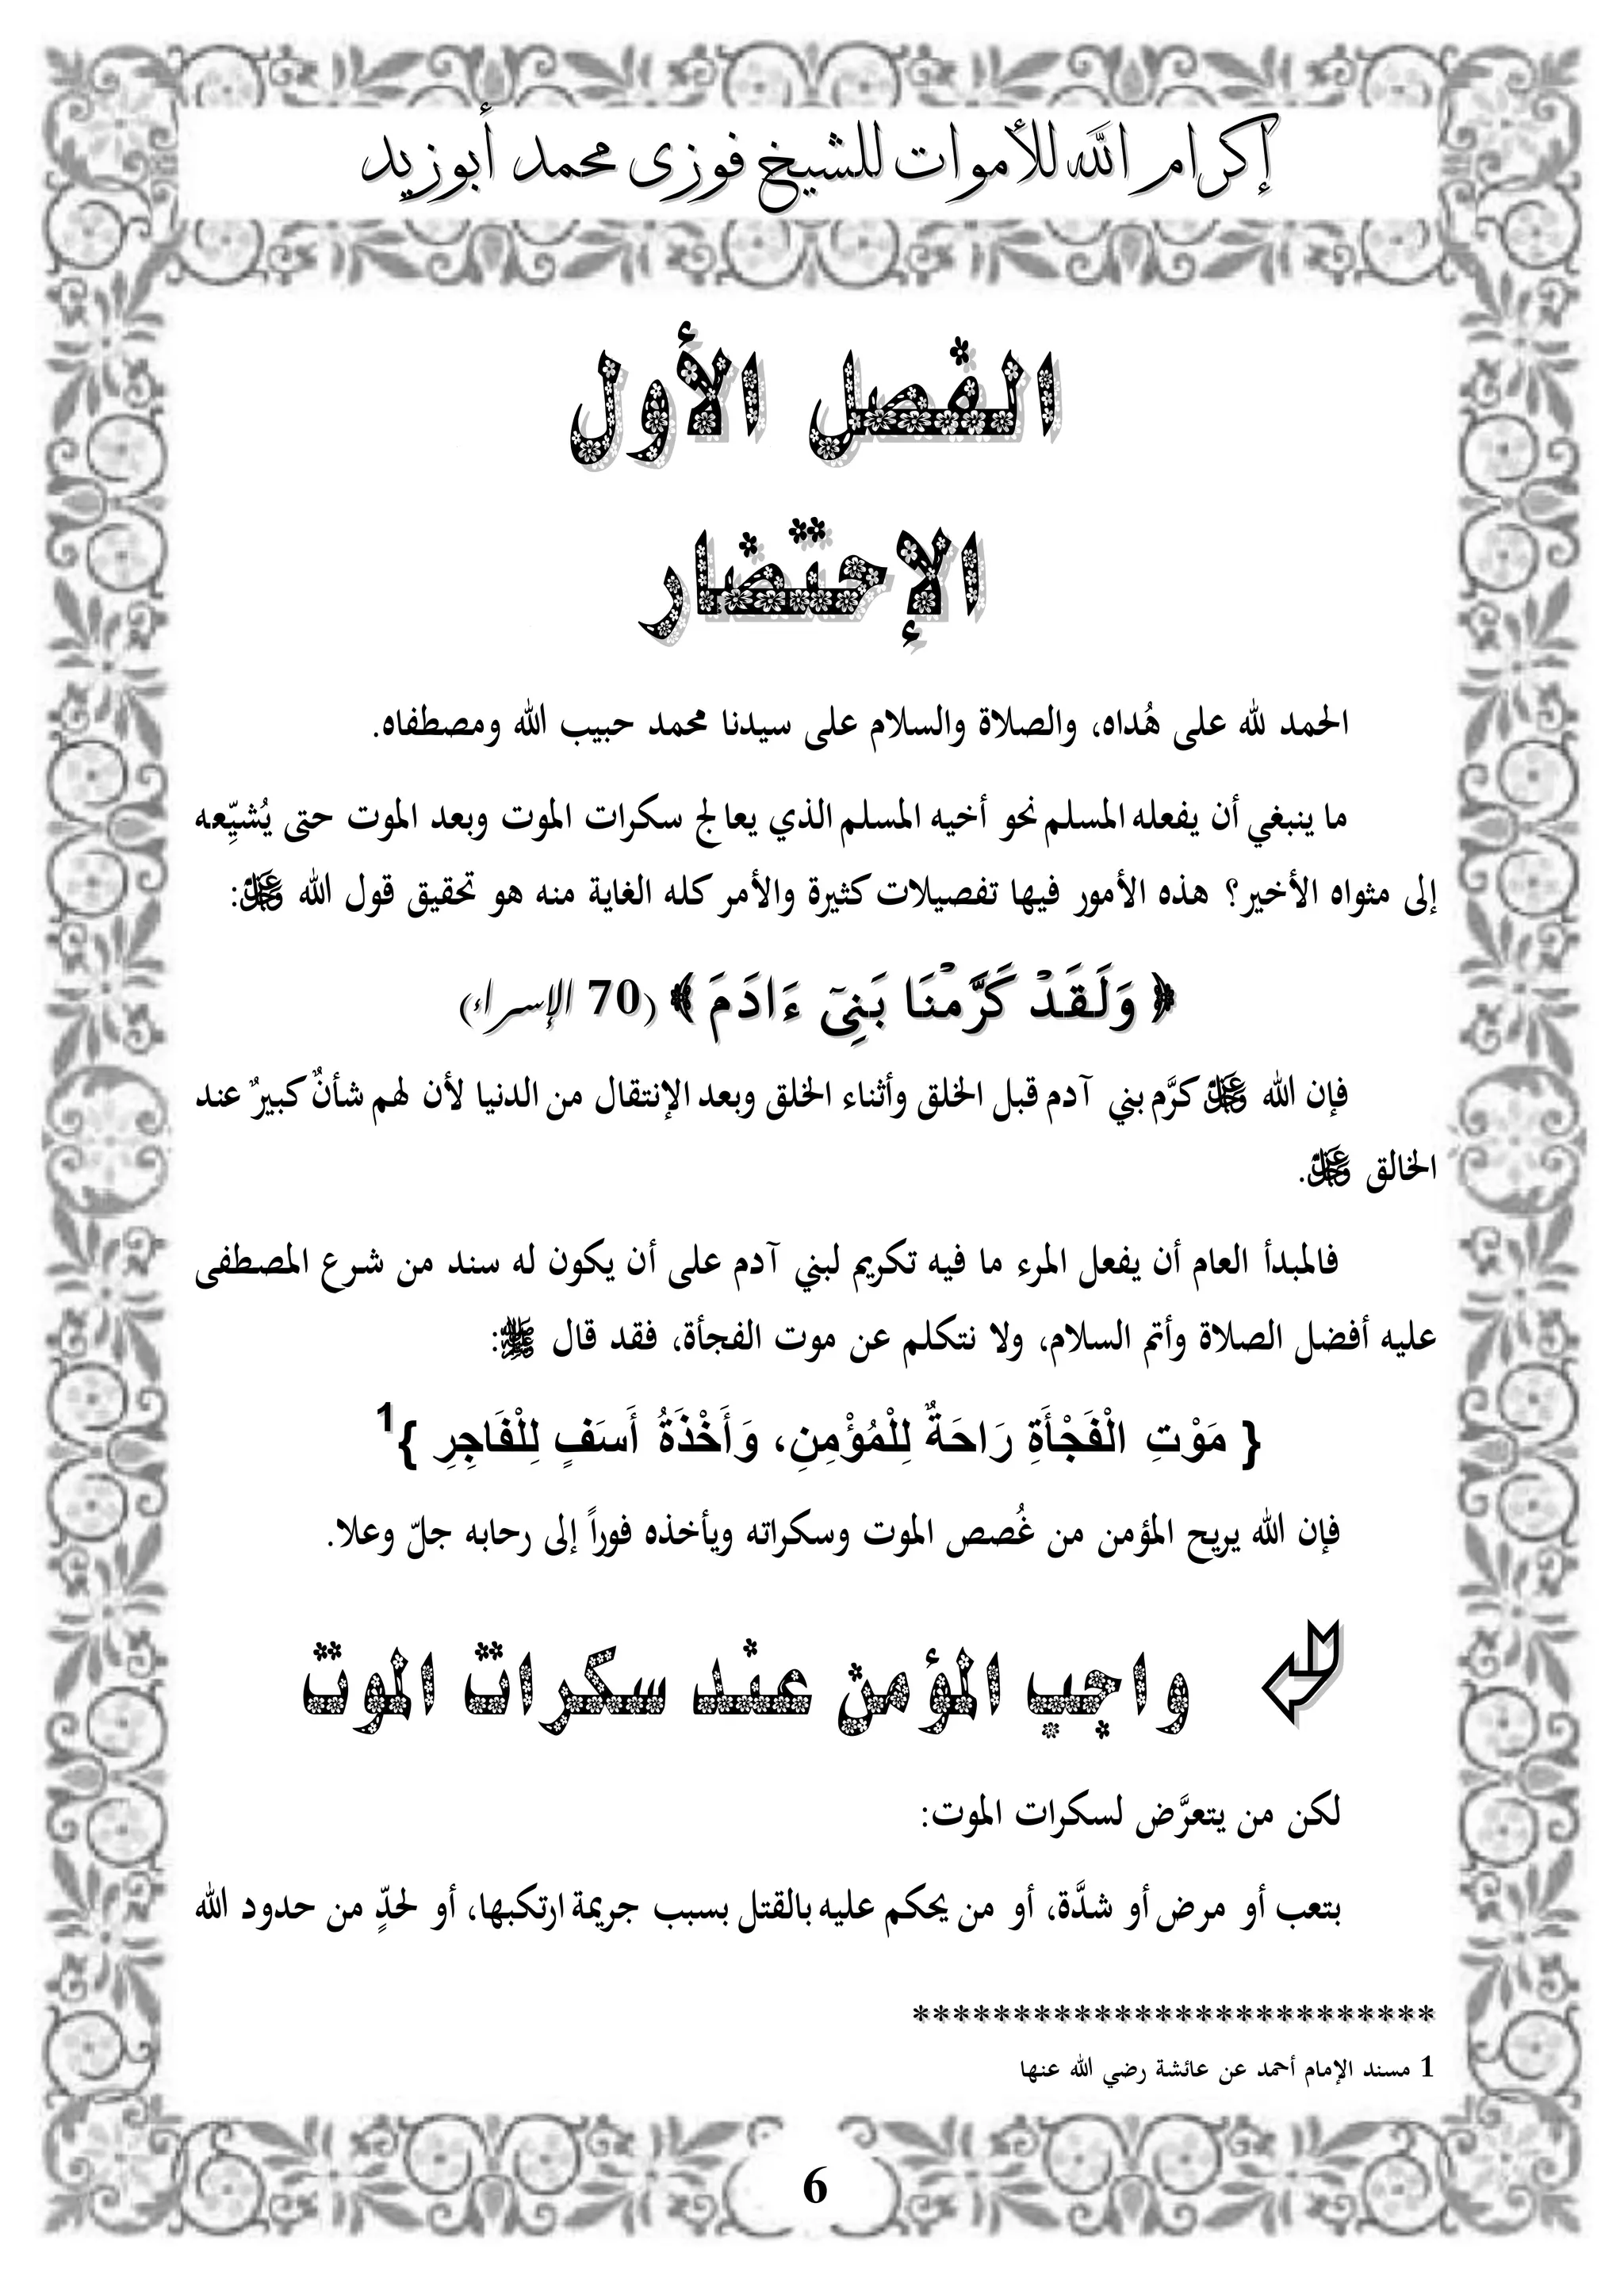 إكرام الله للأموات للشيخ فوزى محمد أبوزيد
الفصل الأول
الإحتضار
الحمد لله على هُداه، والصلاة والسلام على سيدنا محمد حبيب الله ومصطفاه.
ما ينبغي أن يفعله المسلم نحو أخيه المسلم الذي يعالج سكرات الموت وبعد الموت حتى يُشيِّعه
إلى مثواه الأخير؟ هذه الأمور فيها تفصيلات كثيرة والأمر كله الغاية منه هو تحقيق قول الله عز وجل:
﴿ وَلَقَدْ كَرَّمْنَا بَنِىٓ ءَادَمَ ﴾ (70 الإسراء)
فإن الله عز وجل كرَّم بني آدم قبل الخلق وأثناء الخلق وبعد الإنتقال من الدنيا لأن لهم شأنٌ كبيرٌ عند
الخالق عز وجل.
فالمبدأ العام أن يفعل المرء ما فيه تكريم لبني آدم على أن يكون له سند من شرع المصطفى
عليه أفضل الصلاة وأتم السلام، ولا نتكلم عن موت الفجأة، فقد قال ﷺ:
{ مَوْتِ الْفَجْأَةِ رَاحَةٌ لِلْمُؤْمِنِ، وَأَخْذَةُ أَسَفٍ لِلْفَاجِرِ }1
فإن الله يريح المؤمن من غُصص الموت وسكراته ويأخذه فوراً إلى رحابه جلّ وعلا.
واجب المؤمن عند سكرات الموت
لكن من يتعرَّض لسكرات الموت:
بتعب أو مرض أو شدَّة، أو من يحكم عليه بالقتل بسبب جريمة ارتكبها، أو لحدٍّ من حدود الله
**************************
1 مسند الإمام أحمد عن عائشة رضي الله عنها
6